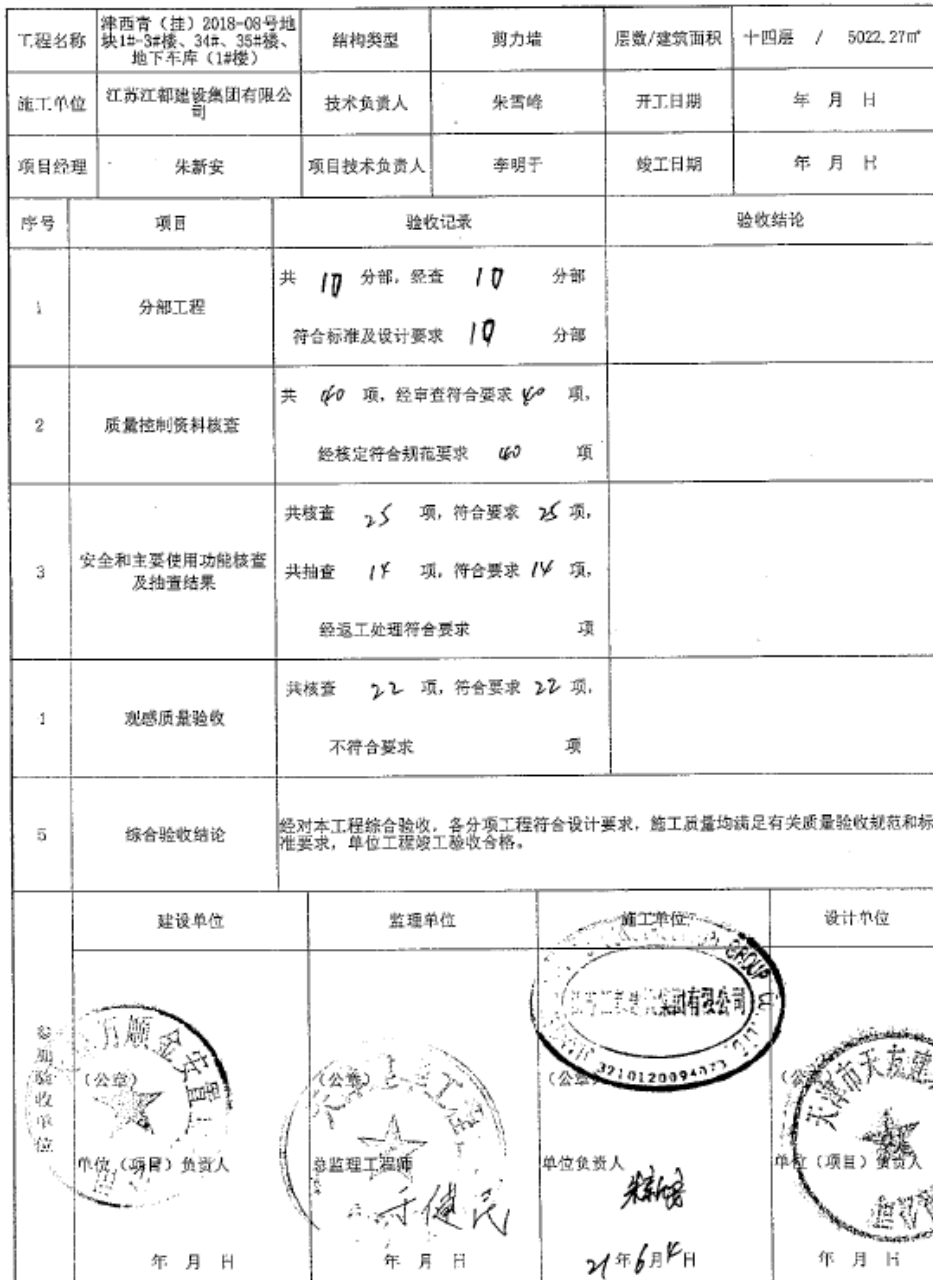 工程名称
津西青（挂）2018-08号地
块1#-3#楼、34#、35#楼、
地下车库（1#楼）
结构类型
剪力墙
层数/建筑面积
十四层 / 5022.27㎡
施工单位
江苏江都建设集团有限公
司
技术负责人
朱雪峰
开工日期
年 月 日
项目经理
朱新安
项目技术负责人
李明于
竣工日期
年 月 日
序号
项目
验收记录
验收结论
1
分部工程
共 10 分部，经查 10 分部
符合标准及设计要求 10 分部
2
质量控制资料核查
共 40 项，经审查符合要求 40 项，
经核定符合规范要求 40 项
3
安全和主要使用功能核查
及抽查结果
共核查 25 项，符合要求 25 项，
共抽查 14 项，符合要求 14 项，
经返工处理符合要求 项
观感质量验收
共核查 22 项，符合要求 22 项，
不符合要求 项
5
综合验收结论
经对本工程综合验收，各分项工程符合设计要求，施工质量均满足有关质量验收规范和标
准要求，单位工程竣工验收合格。
参加验收单位
建设单位
监理单位
施工单位
设计单位
顺金安置
工程
GROUP
集团有限公司
3210120094073
天津市天友建
（公章）
（公章）
（公章
（公
单位（项目）负责人
总监理工程师
单位负责人
单位（项目）负责人
年 月 日
年 月 日
21年6月4日
年 月 日